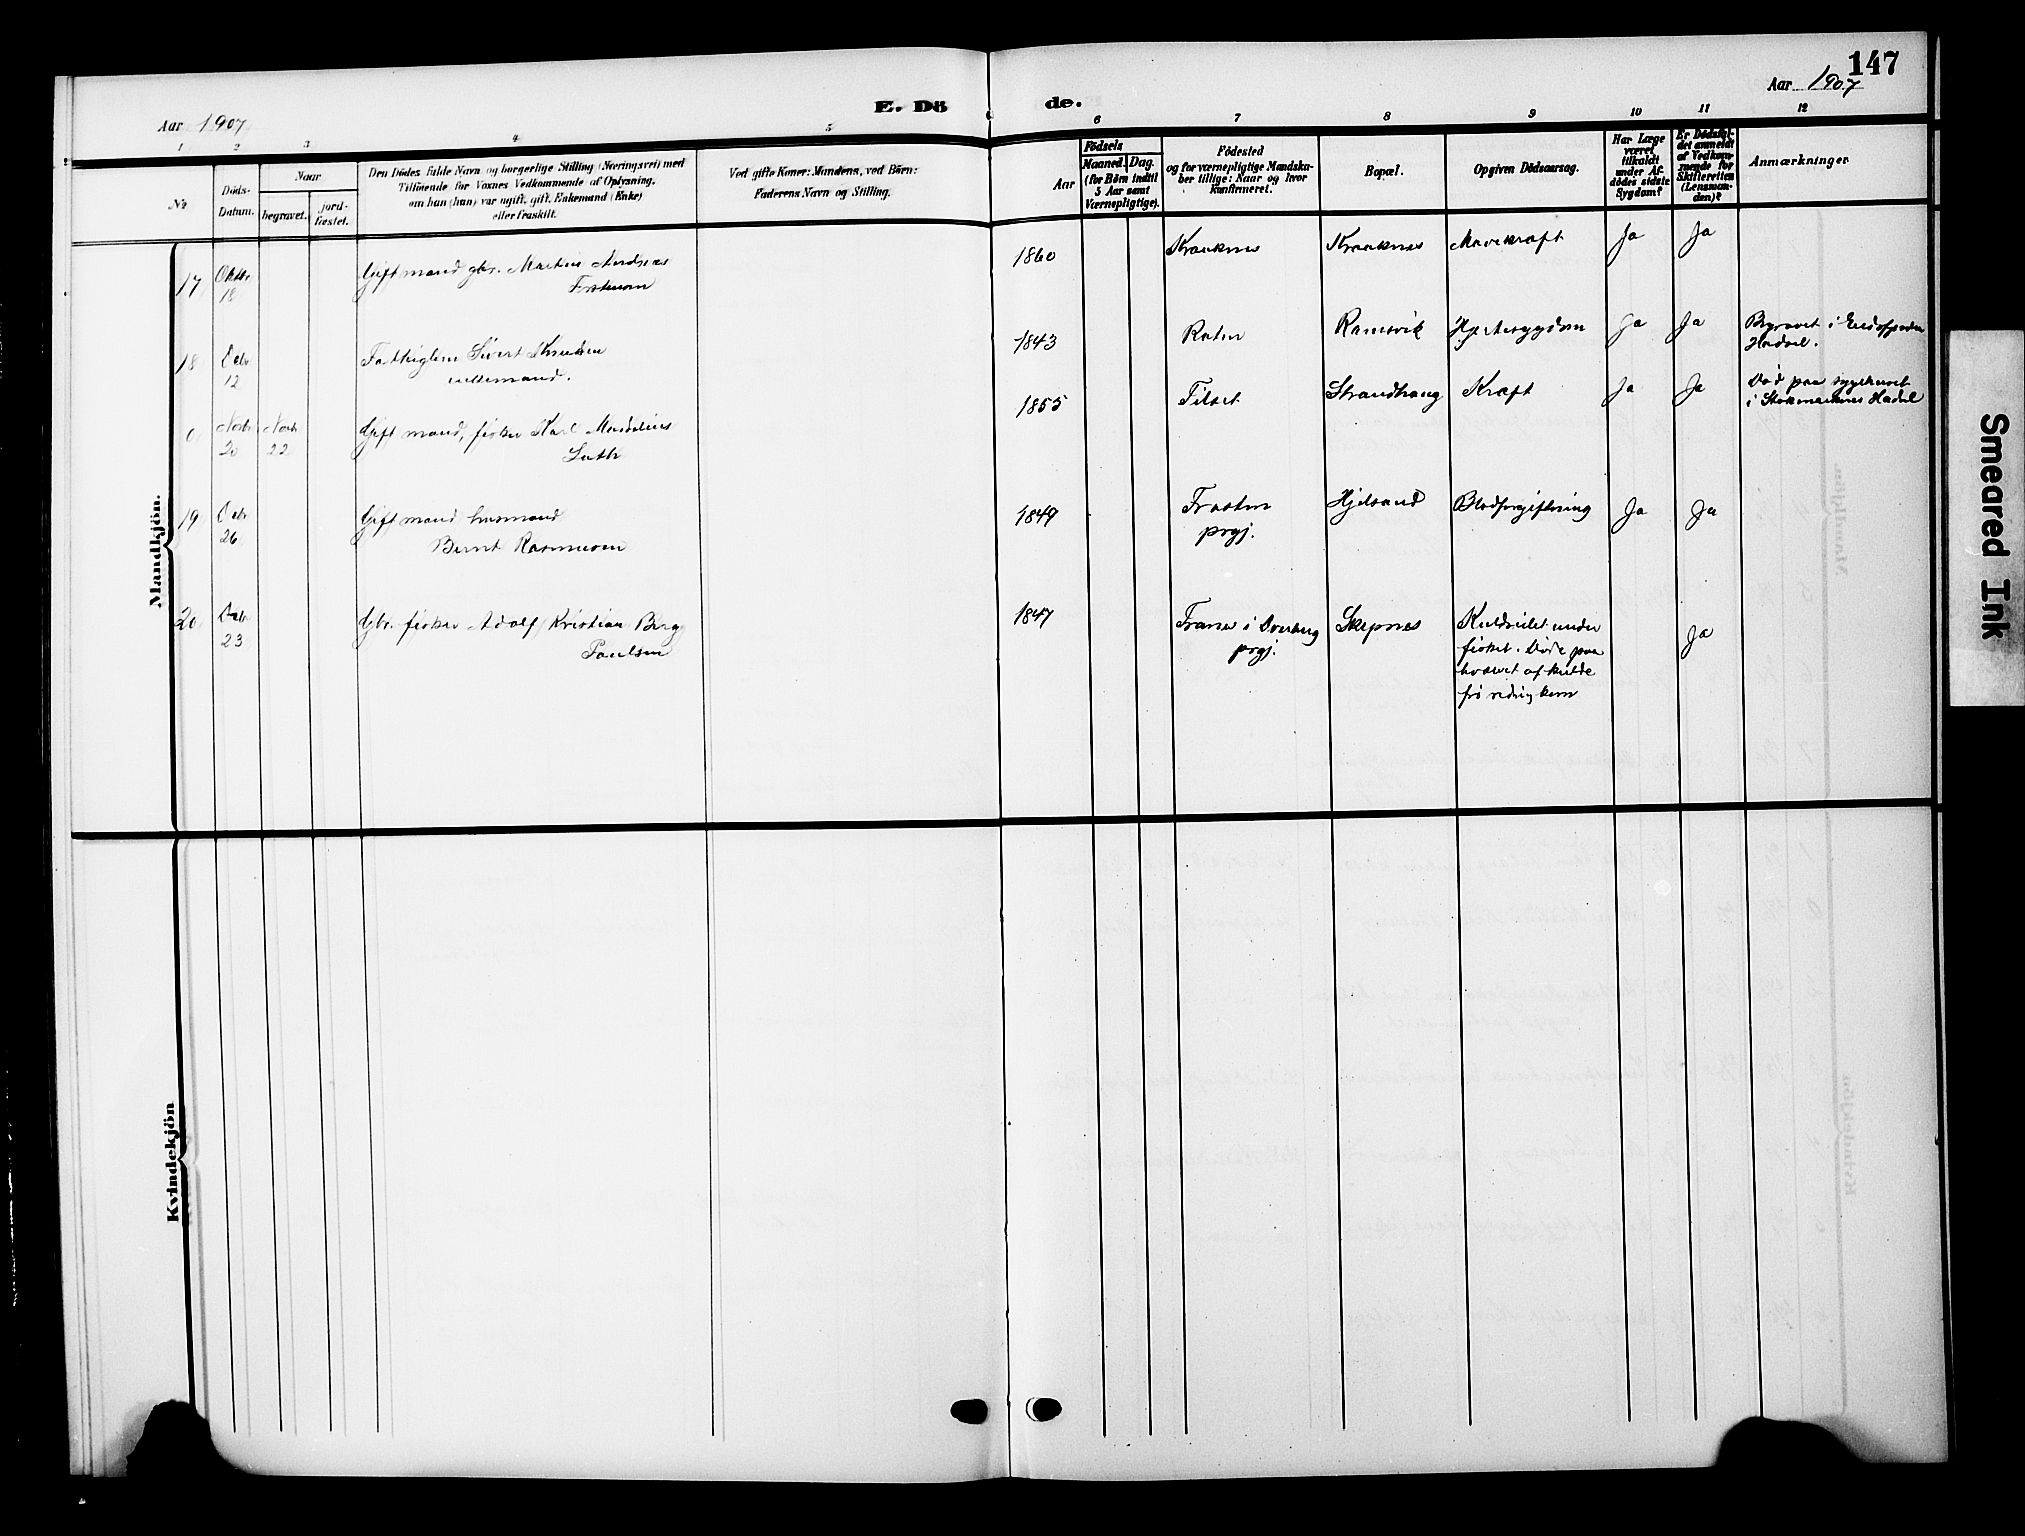 147
Aar 1907
E. Dö
de.
Aar 1907
1
2
3
4
5
6
7
8
9
10
11
12
№
Döds-
Datum.
Naar
begravet.
jord-
fæstet.
Den Dödes fulde Navn og borgerlige Stilling (Næringsvei) med
Tilföiende for Voxnes Vedkommende af Oplysning,
om han (hun) var ugift, gift, Enkemand (Enke)
eller fraskilt.
Ved gifte Koner: Mandens, ved Børn:
Faderens Navn og Stilling.
Aar
Födsels
Maaned. Dag.
(for Börn indtil
5 Aar samt
Værnepligtige).
Födested
og for værnepligtige Mandska-
ber tillige: Naar og hvor
konfirmeret.
Bopæl.
Opgiven Dödsaarsag.
Har Læge
været
tilkaldt
under Af-
dödes sidste
Sygdom?
Er Dödsfal-
det anmeldt
af Vedkom-
mende for
Skifteretten
(Lensman-
den)?
Anmærkninger
Mandkjön.
17
Oktbr
18
Gift mand gbr. Martin Andreas
1860
Kraaknes
Kraaknes
Mavekræft
Ja
Ja
18
Debr
12
Fattiglem Sivert Knudsen
enkemand.
1843
Ramsvik
Hjertesygdom
Ja
Ja
Begravet i
Hadsel.
0
Novbr
20
Novbr
22
Gift mand, fisker Karl
1855
Tilset
Strandhaug
Kræft
Ja
Ja
Död paa sygehuset
i Stokmarknes Hadsel
19
Debr
26
Gift mand husmand
Bernt Rasmussen
1849
Trosten
prgj.
Hjelsand
Blodforgiftning
Ja
Ja
20
Debr
23
Gbr. fisker Adolf Kristian Berg
Paulsen
1847
i
prgj.
Skepnes
Kuldseilet under
fisket. Döde paa
hvælvet af kulde
før redning kom
Ja
Kvindekjön
Smeared Ink